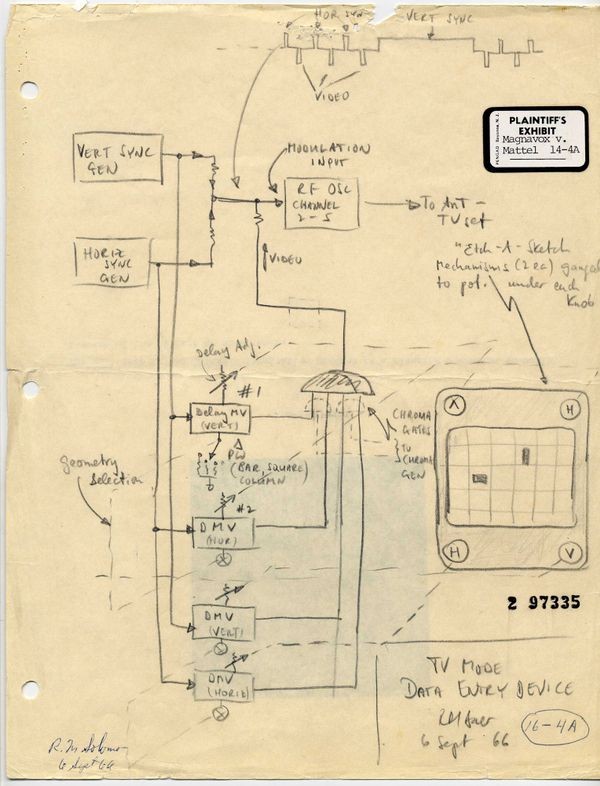 HOR SYN
VERT SYNC
VIDEO
PLAINTIFF'S
EXHIBIT
Magnavox v.
Mattel 14-4A
VERT SYNC
GEN
MODULATION
INPUT
RF OSC
CHANNEL
2-5
To Ant -
TV set
HORIZ
SYNC
GEN
VIDEO
"Etch-A-Sketch
Mechanisms (2 ea) ganged
to pot. under each
Knob
Delay Adj.
#1
Delay MV
(VERT)
PW
(BAR, SQUARE)
COLUMN
CHROMA
GATES
TO
CHROMA
GEN
V
H
H
V
Geometry
Selection
#2
DMV
(HOR)
DMV
(VERT)
DMV
(HORIZ)
2 97335
TV MODE
DATA ENTRY DEVICE
6 Sept '66
16-4A
R. M.
6 Sept 66